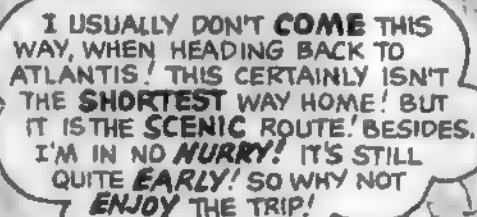 I USUALLY DON'T COME THIS
WAY, WHEN HEADING BACK TO
ATLANTIS! THIS CERTAINLY ISN'T
THE SHORTEST WAY HOME! BUT
IT IS THE SCENIC ROUTE! BESIDES.
I'M IN NO HURRY! IT'S STILL
QUITE EARLY! SO WHY NOT
ENJOY THE TRIP!